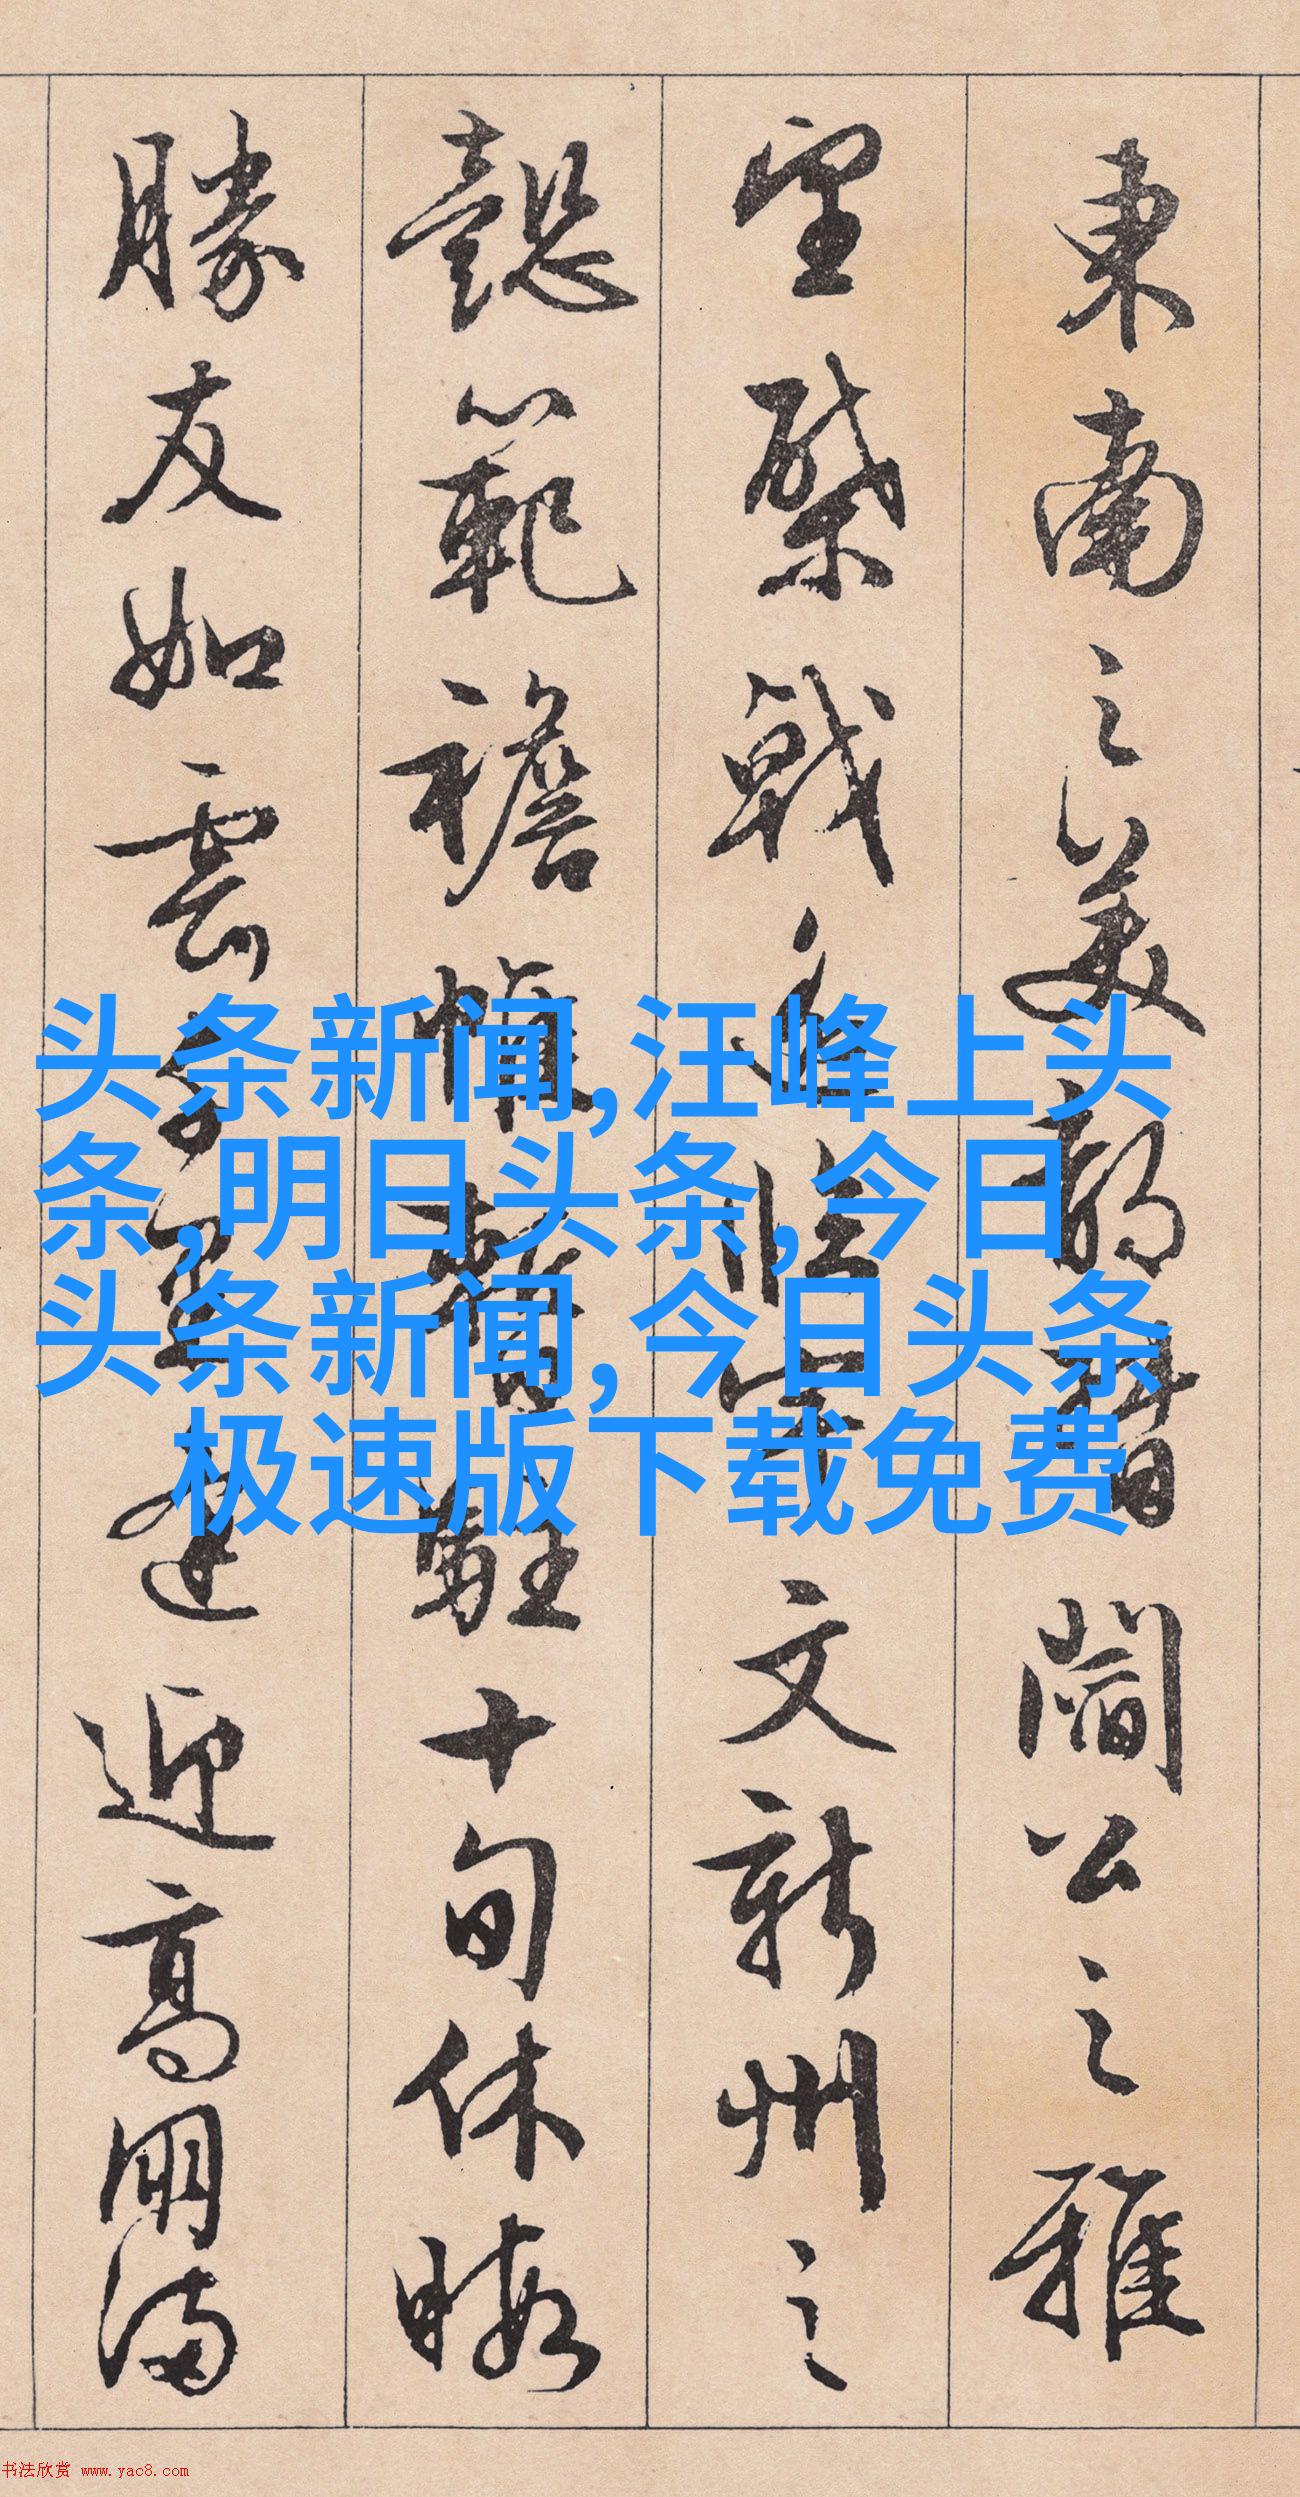 東南之美都督閻公之雅
望棨戟遙臨宇文新州之
懿範襜帷暫駐十旬休暇
勝友如雲千里逢迎高朋滿
头条新闻,汪峰上头
条,明日头条,今日
头条新闻,今日头条
极速版下载免费
书法欣赏 www.yac8.com